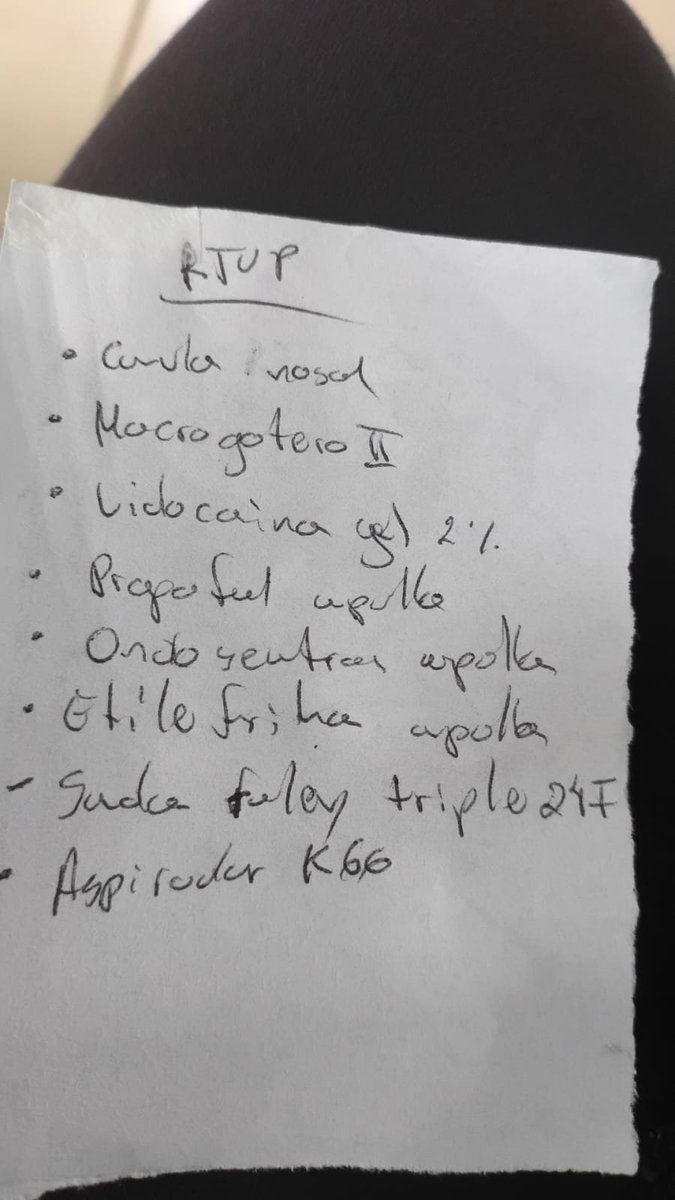 RTUP
• Canula nasal
• Macrogotero II
• Lidocaina gel 2%
• Propofol ampolla
• Ondosentron ampolla
• Etilefrina ampolla
- Sonda foley triple 24F
• Aspirador K66